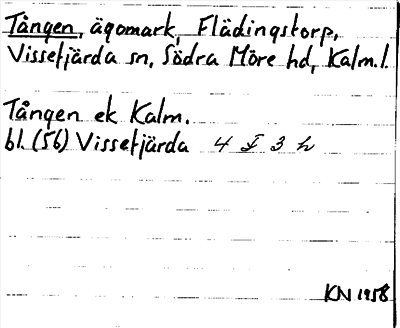 Tången, ägomark, Flädingstorp,
Vissefjärda sn, Södra Möre hd, Kalm. l.
Tången ek Kalm.
bl. (56) Vissefjärda 4 F 3 h
KN 1958